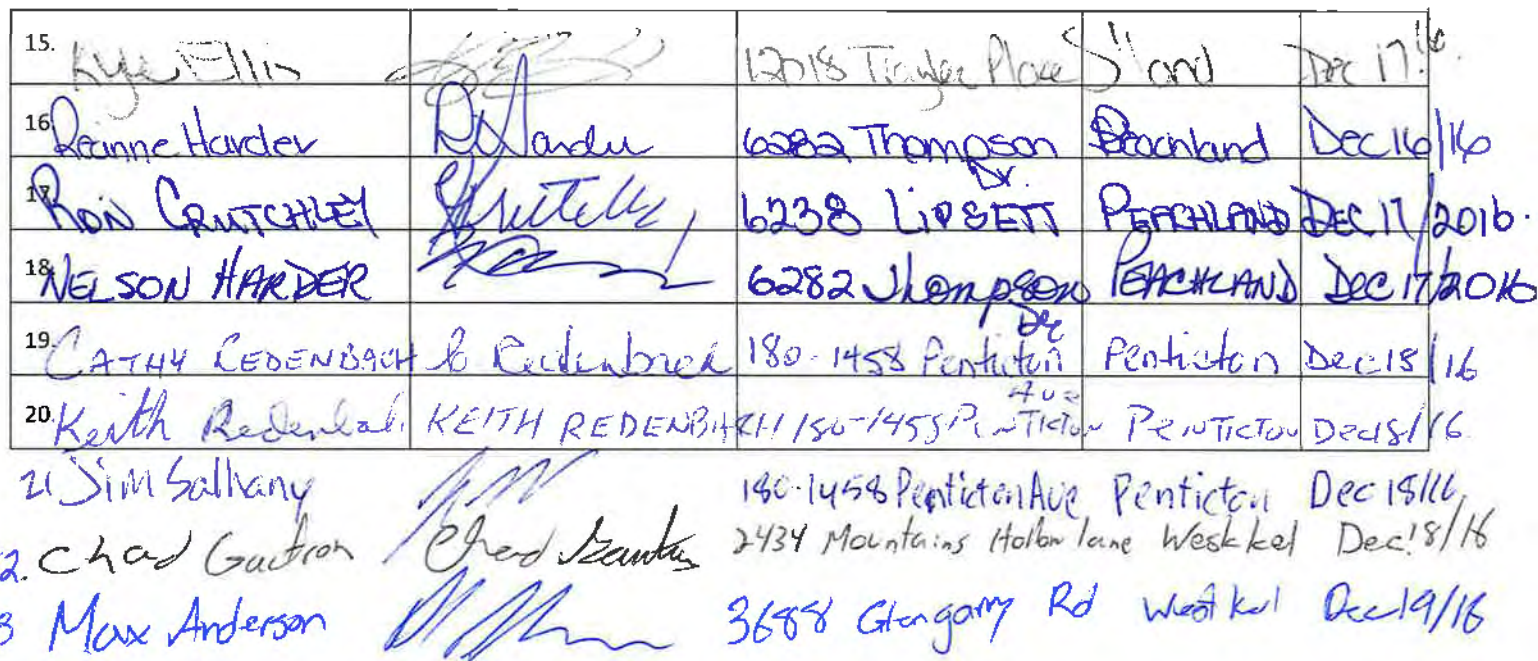 15. Kyle Ellis 12018 Place S'land Dec 17
16. Reanne Harder R Harder 6282 Thompson Dr. Peachland Dec 16/16
17. RON CRUTCHLEY 6238 LIPSETT PEACHLAND DEC 17/2016.
18. NELSON HARDER 6282 Thompson Dr PEACHLAND DEC 17/2016
19. CATHY REDENBACH C Redenbach 180-1458 Penticton Penticton Dec 18/16
20. Keith Redenbach KEITH REDENBACH 180-1458 PENTICTON Ave PENTICTON Dec 18/16
21 Jim Salhany 180-1458 Penticton Ave Penticton Dec 18/16
2. Chad Gautron Chad Gautron 2434 Mountains Hollow lane West kel Dec 18/16
3 Max Anderson 3688 Glengarry Rd West kel Dec 19/16